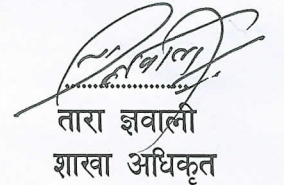 तारा ज्ञवाली
शाखा अधिकृत